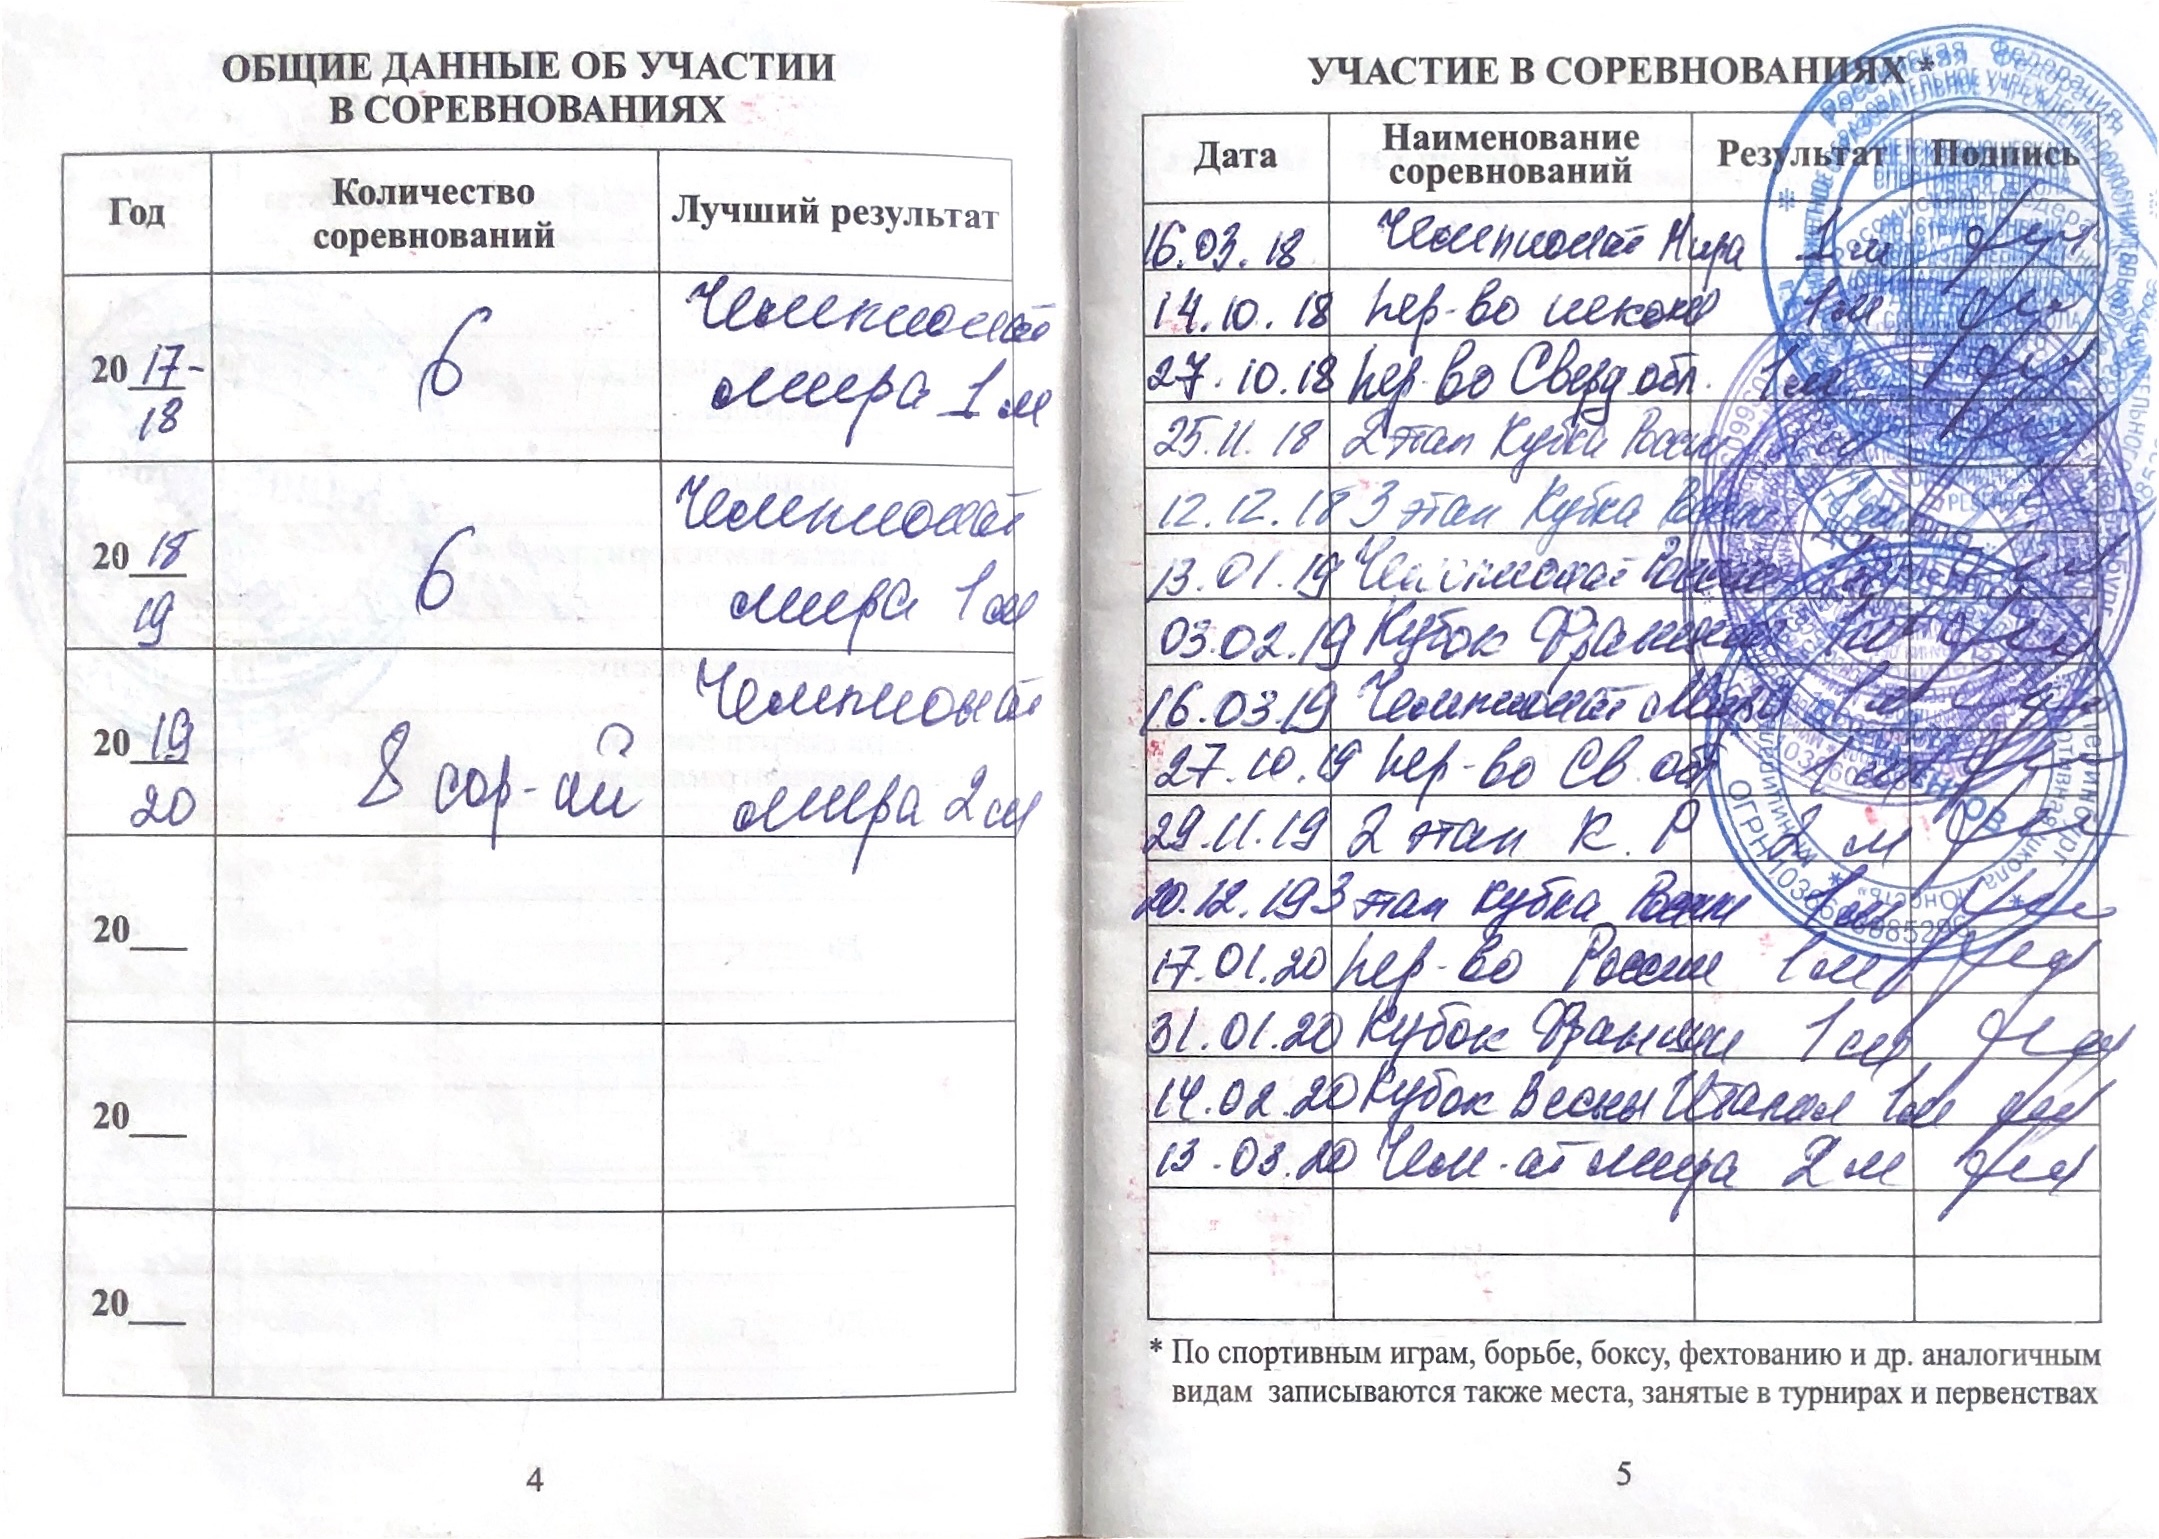 ОБЩИЕ ДАННЫЕ ОБ УЧАСТИИ
В СОРЕВНОВАНИЯХ
Год Количество соревнований Лучший результат
2017-18 6 Чемпионат
мира 1 м
2018 19 6 Чемпионат
мира 1 м
2019 20 8 сор-ий Чемпионат
мира 2 м
20___
20___
20___
4
УЧАСТИЕ В СОРЕВНОВАНИЯХ *
Дата Наименование соревнований Результат Подпись
16.03.18 Чемпионат Мира 1 м
14.10.18 пер-во 1 м
27.10.18 пер-во Сверд обл. 1 м
25.11.18 2 этап Кубка России 2 м
12.12.18 3 этап Кубка России
13.01.19 Чемпионат России
03.02.19 Кубок Франции 1 м
16.03.19 Чемпионат Мира 1 м
27.10.19 пер-во Св. обл 1 м
29.11.19 2 этап К. Р 2 м
20.12.19 3 этап Кубка России 1 м
17.01.20 пер-во России 1 м
31.01.20 Кубок Франции 1 м
14.02.20 Кубок Весны Италия 1 м
13.03.20 Чем-ат мира 2 м
* По спортивным играм, борьбе, боксу, фехтованию и др. аналогичным
видам записываются также места, занятые в турнирах и первенствах
5